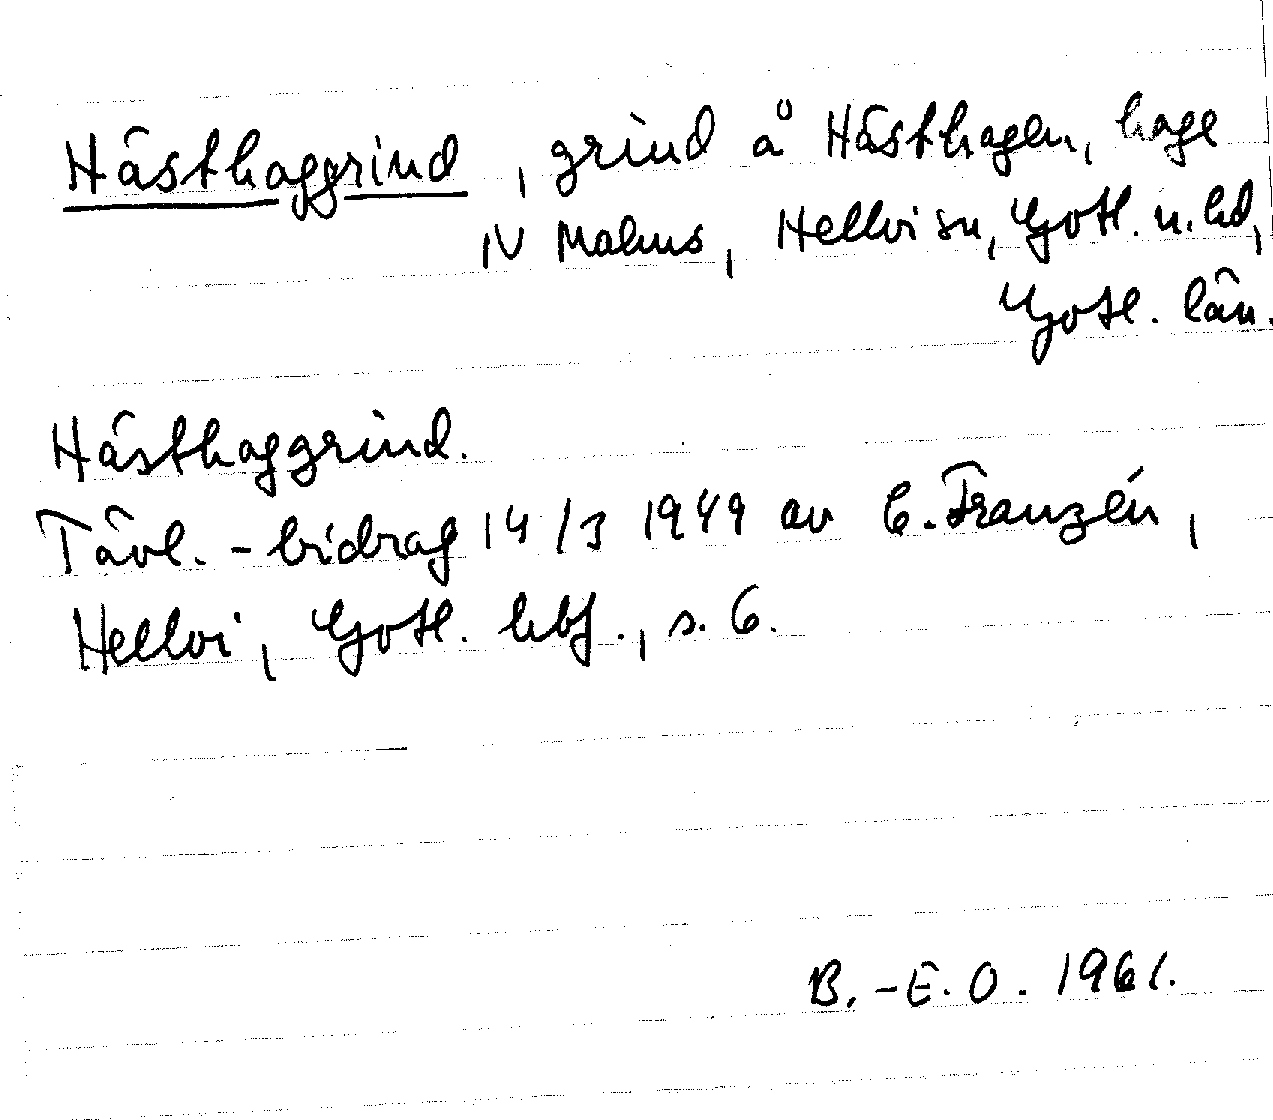 Hästhaggrind, grind å Hästhagen, hage
N Malms, Hellvi sn, Gotl. n. hd,
Gotl. län.
Hästhaggrind.
Tävl.-bidrag 14/3 1949 av C. Franzén,
Hellvi, Gotl. hbf., s. 6.
B.-E.O. 1961.